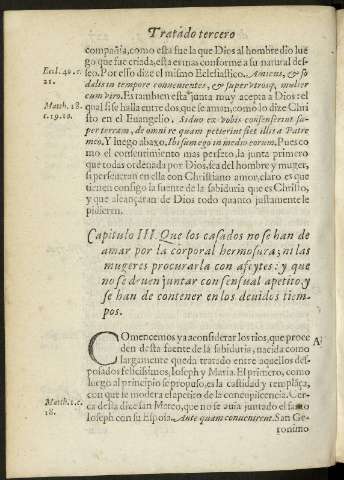 Tratado tercero
compañia, como esta fue la que Dios al hombre dio lue
go que fue criada, esta es mas conforme a su natural des-
Eccl. 40. c. seo. Por esso dize el mismo Eclesiastico. Amicus, & so
21. dalis in tempore convenientes, & super vtrosq, mulier
cum viro. Es tambien esta junta muy acepta a Dios: el
Matth. 18. qual si se halla entre dos que se aman, como lo dize Chri
c. 19. 20. sto en el Euangelio. Si duo ex vobis consenserint su
per terram, de omni re quam petierint fiet illis a Patre
meo. Y luego abaxo. Ibi sum ego in medio eorum. Pues co
mo el consentimiento mas perfeto, la junta primero
que todas ordenada por Dios, sea del hombre y muger,
si perseueran en ella con Christiano amor, claro es que
tienen consigo la fuente de la sabiduria que es Christo,
y que alcançaran de Dios todo quanto justamente le
pidieren.
Capitulo III. Que los casados no se han de
amar por la corporal hermosura; ni las
mugeres procurarla con afeytes: y que
no se deuen juntar con sensual apetito, y
se han de contener en los deuidos tiem-
pos.
COmencemos ya a considerar los rios, que proce A
den desta fuente de la sabiduria, nacida como
largamente queda tratado entre aquellos des-
posados felicissimos, Ioseph y Maria. El primero, como
luego al principio se propuso, es la castidad y templãça,
con que se modera el apetito de la concupiscencia. Cer-
Matth. 1. c. ca della dize san Mateo, que no se auia juntado el santo
18. Ioseph con su Esposa. Ante quam conuenirent. San Ge-
ronimo